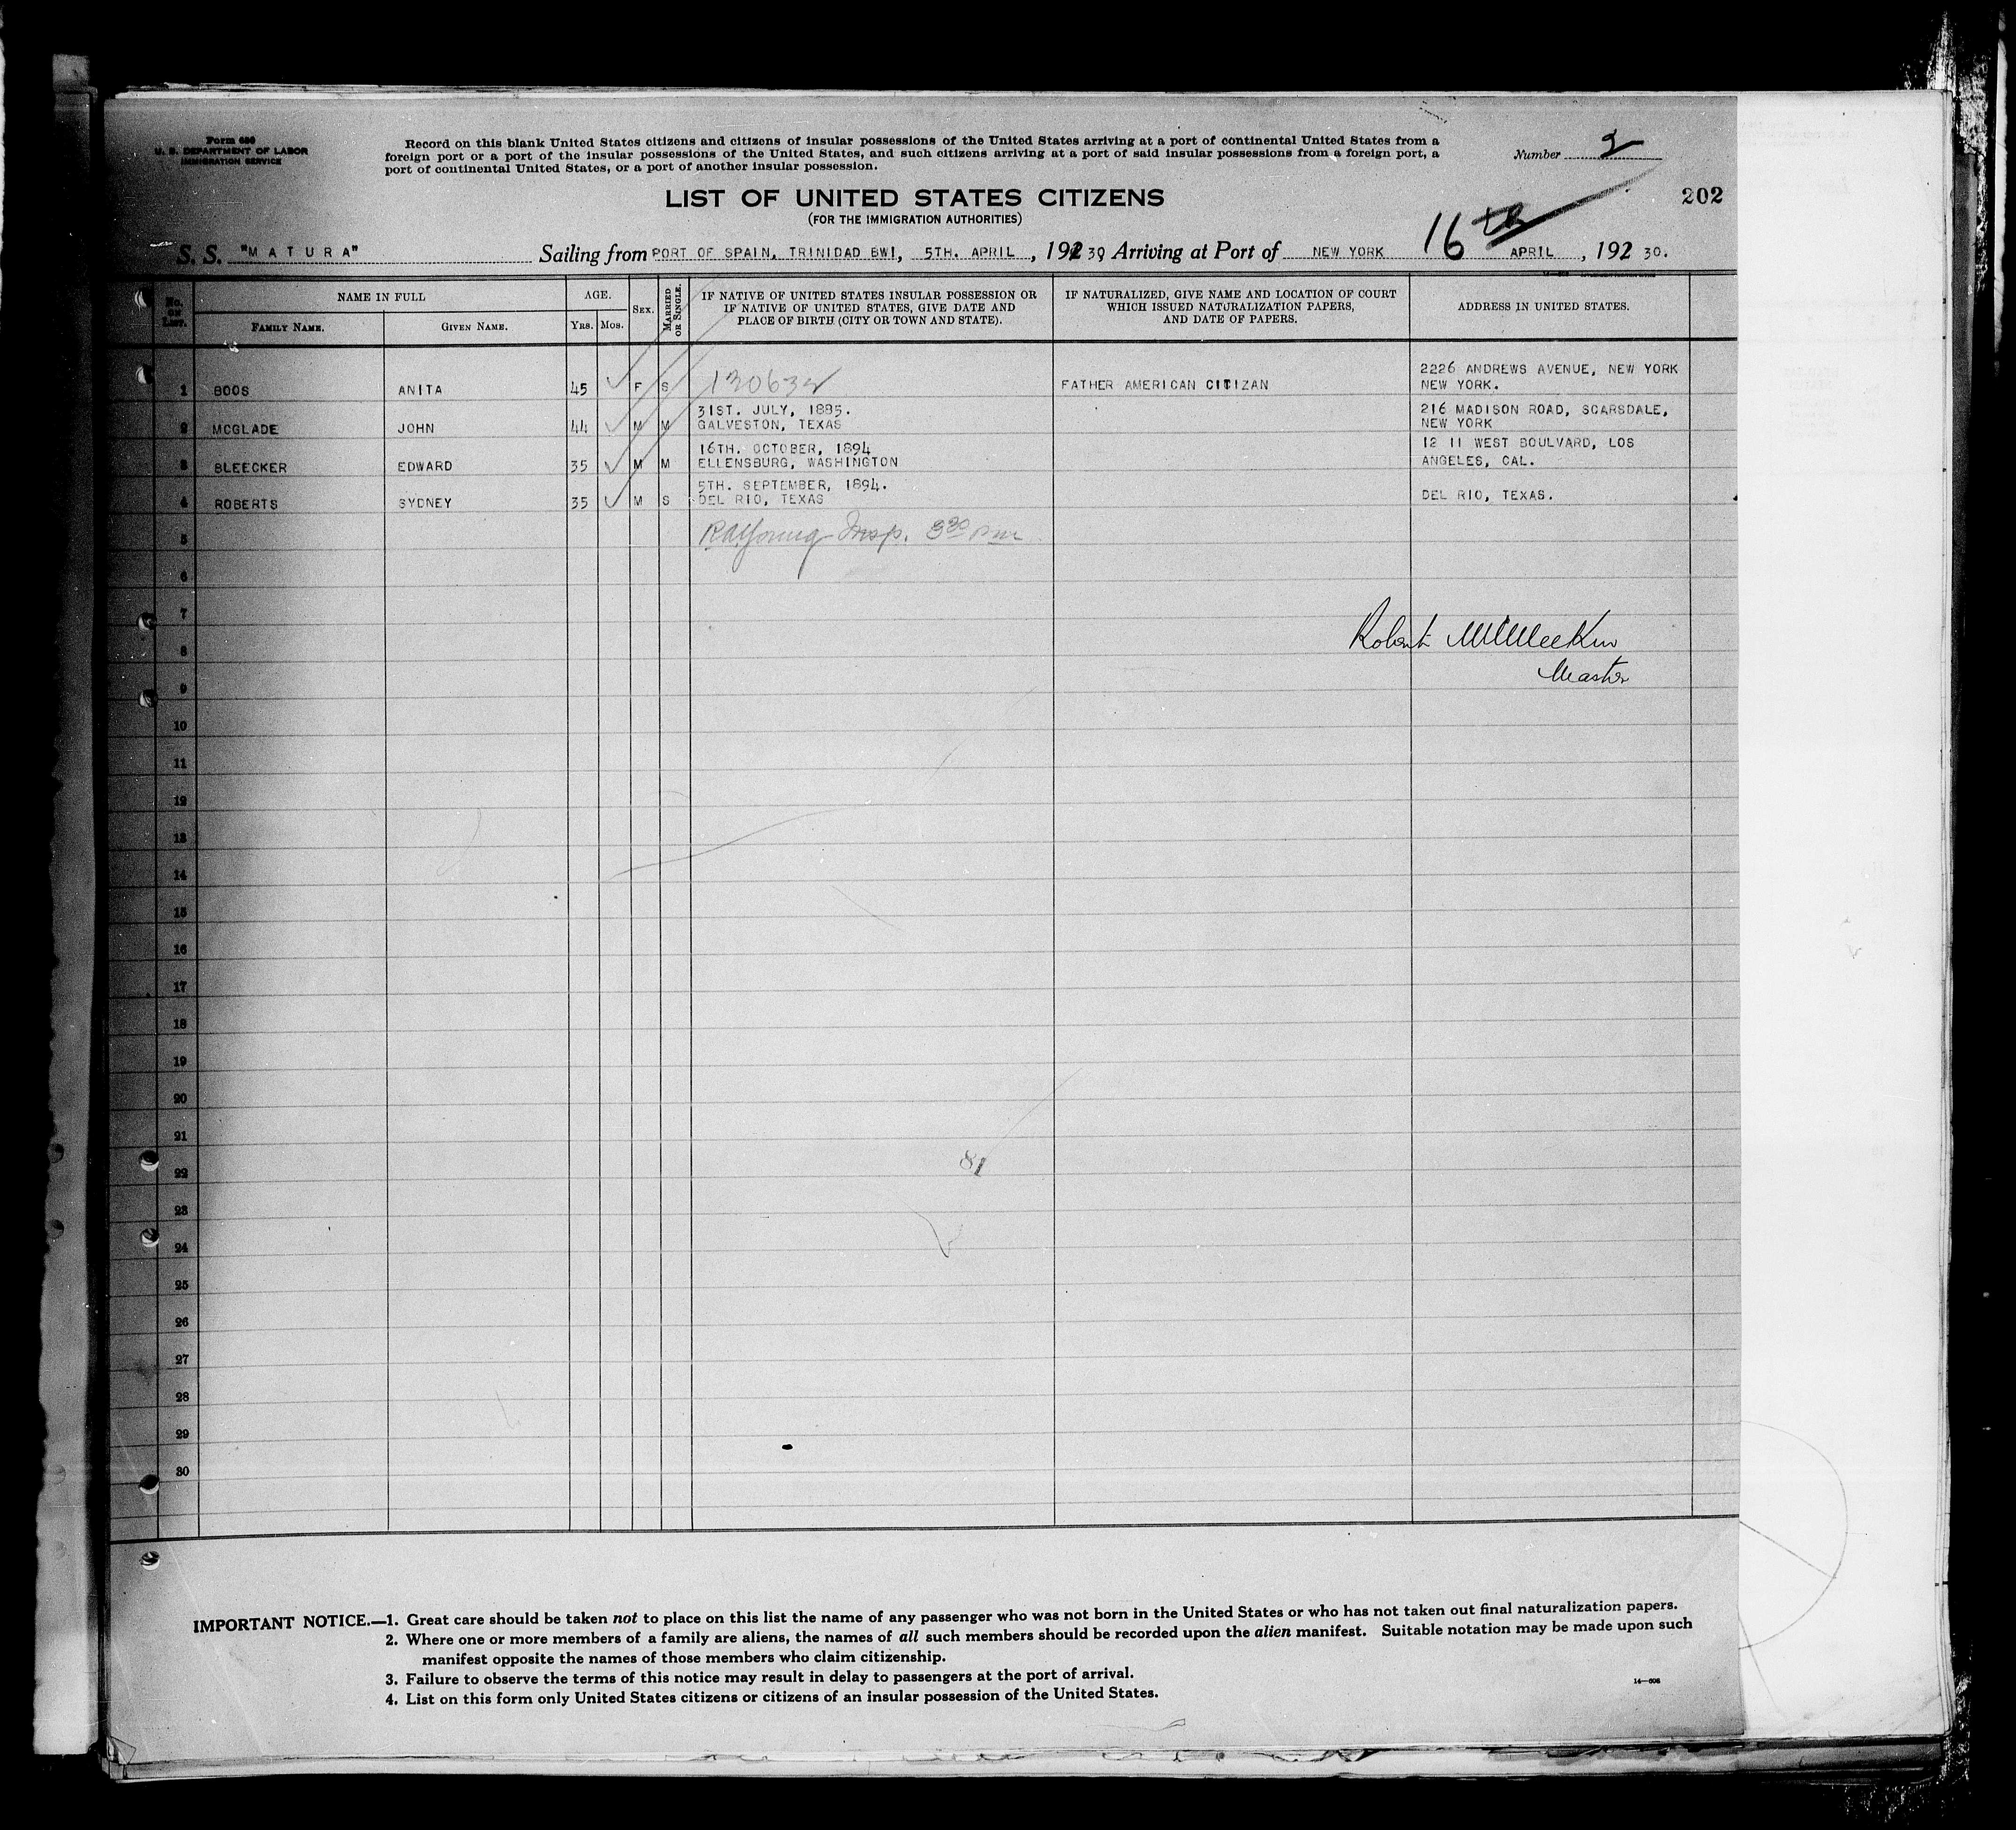 Form 630
U. S. DEPARTMENT OF LABOR
IMMIGRATION SERVICE
Record on this blank United States citizens and citizens of insular possessions of the United States arriving at a port of continental United States from a
foreign port or a port of the insular possessions of the United States, and such citizens arriving at a port of said insular possessions from a foreign port, a
port of continental United States, or a port of another insular possession.
Number 2
LIST OF UNITED STATES CITIZENS
(FOR THE IMMIGRATION AUTHORITIES)
202
S. S. "MATURA" Sailing from PORT OF SPAIN, TRINIDAD BWI, 5TH. APRIL, 192 30 Arriving at Port of NEW YORK 16th APRIL, 192 30.
No. on List.
NAME IN FULL
FAMILY NAME.
GIVEN NAME.
AGE.
Yrs. Mos.
SEX.
MARRIED OR SINGLE.
IF NATIVE OF UNITED STATES INSULAR POSSESSION OR
IF NATIVE OF UNITED STATES, GIVE DATE AND
PLACE OF BIRTH (CITY OR TOWN AND STATE).
IF NATURALIZED, GIVE NAME AND LOCATION OF COURT
WHICH ISSUED NATURALIZATION PAPERS,
AND DATE OF PAPERS.
ADDRESS IN UNITED STATES.
2226 ANDREWS AVENUE, NEW YORK
1 BOOS ANITA 45 F S FATHER AMERICAN CITIZAN NEW YORK.
31ST. JULY, 1885. 216 MADISON ROAD, SCARSDALE,
2 MCGLADE JOHN 44 M M GALVESTON, TEXAS NEW YORK
16TH. OCTOBER, 1894 12 11 WEST BOULVARD, LOS
3 BLEECKER EDWARD 35 M M ELLENSBURG, WASHINGTON ANGELES, CAL.
5TH. SEPTEMBER, 1894.
4 ROBERTS SYDNEY 35 M S DEL RIO, TEXAS DEL RIO, TEXAS.
5 Insp. 3 30 pm
6
7
Robert McMeekin
8
Master
9
10
11
12
13
14
15
16
17
18
19
20
21
81
22
23
24
25
26
27
28
29
30
IMPORTANT NOTICE.—1. Great care should be taken not to place on this list the name of any passenger who was not born in the United States or who has not taken out final naturalization papers.
2. Where one or more members of a family are aliens, the names of all such members should be recorded upon the alien manifest. Suitable notation may be made upon such
manifest opposite the names of those members who claim citizenship.
3. Failure to observe the terms of this notice may result in delay to passengers at the port of arrival.
4. List on this form only United States citizens or citizens of an insular possession of the United States.